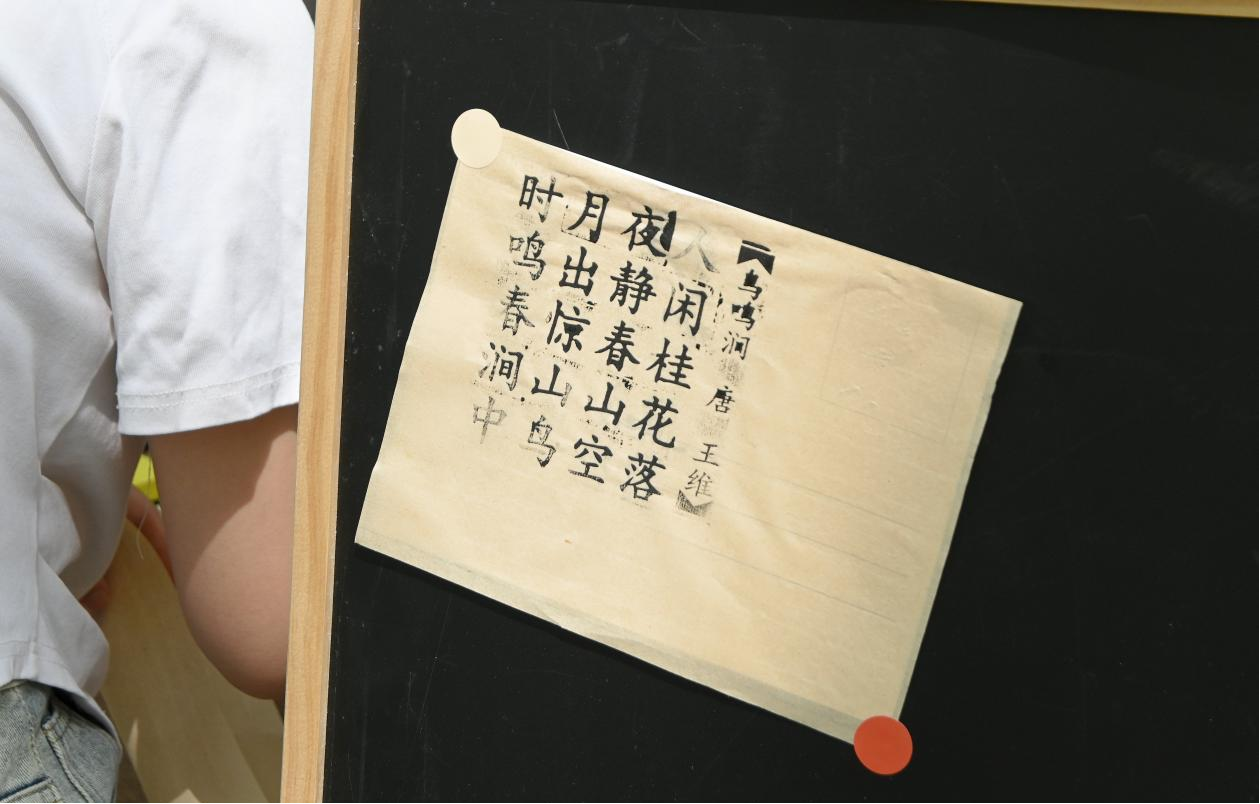 【鸟鸣涧 唐 王维】
人闲桂花落
夜静春山空
月出惊山鸟
时鸣春涧中